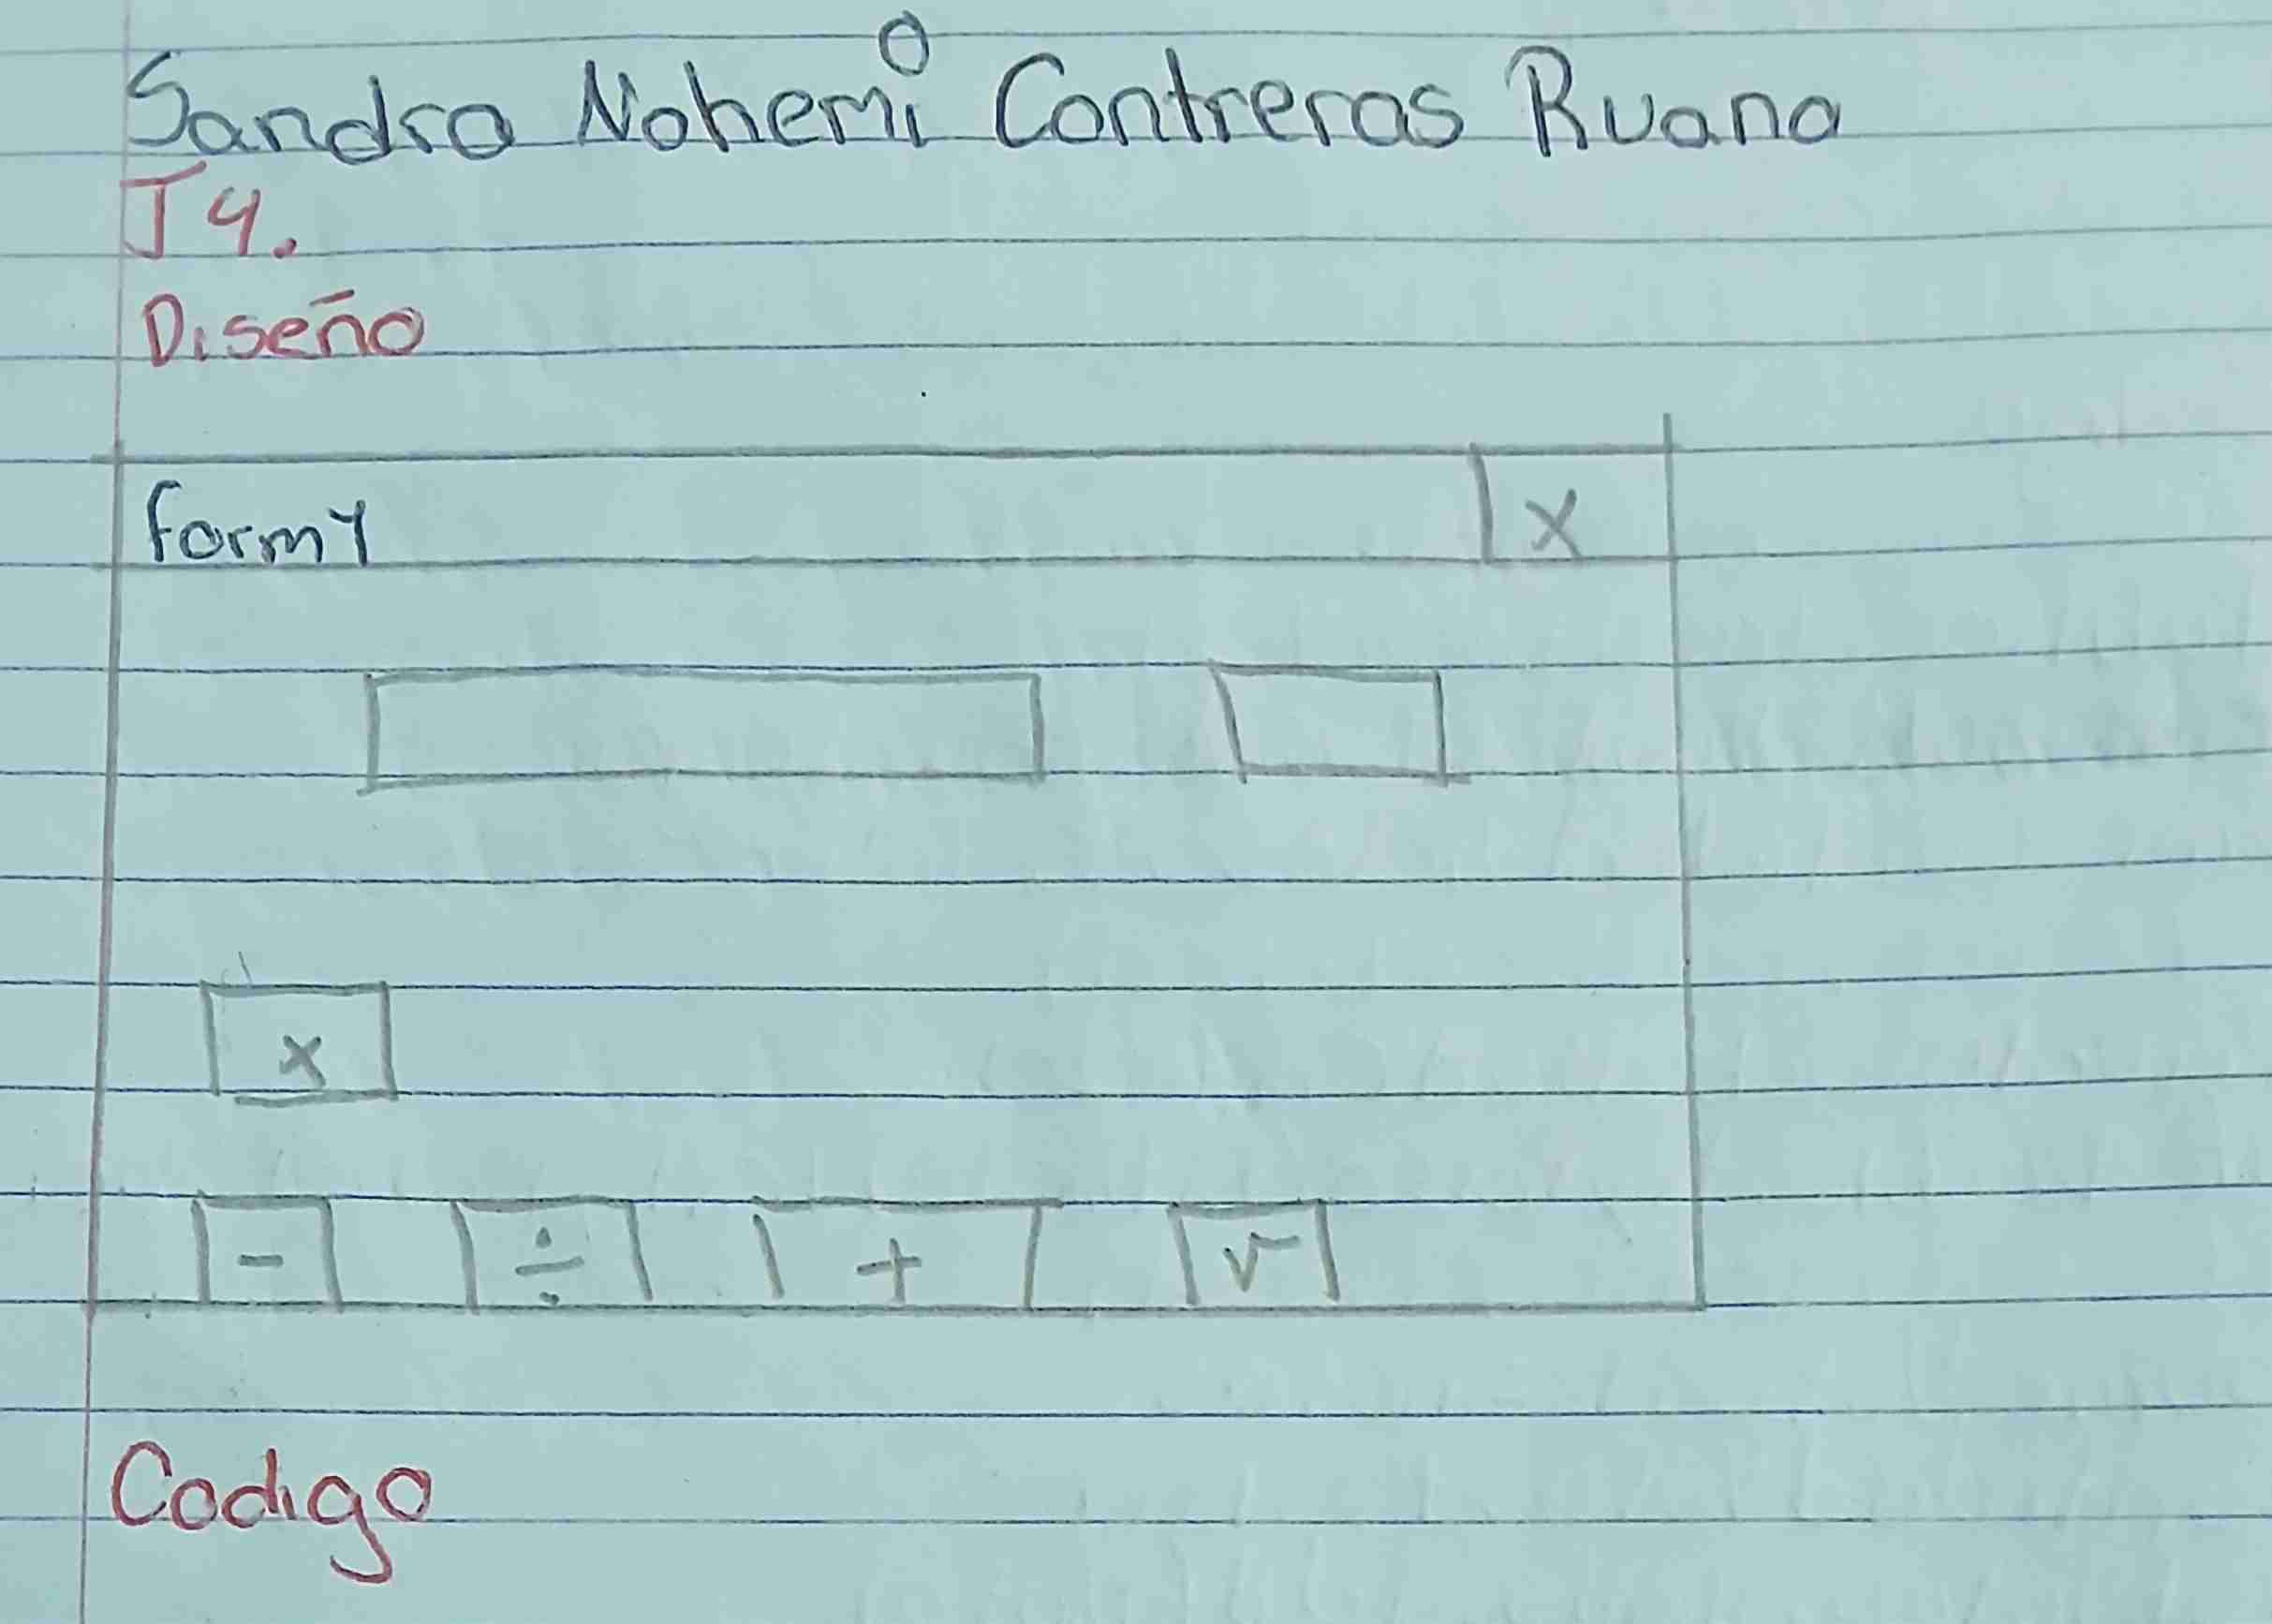 Sandra Nohemi Contreras Ruano
T4.
Diseño
form1 X
x
- ÷ + √
Codigo